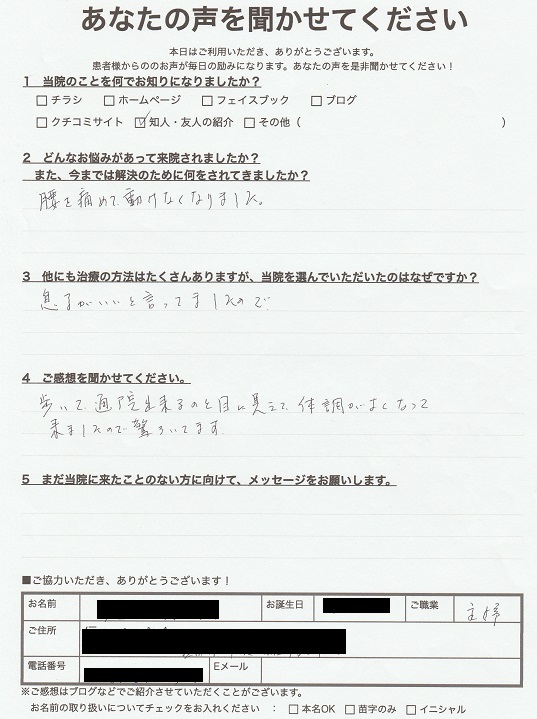 あなたの声を聞かせてください
本日はご利用いただき、ありがとうございます。
患者様からののお声が毎日の励みになります。あなたの声を是非聞かせてください！
1 当院のことを何でお知りになりましたか？
□チラシ □ホームページ □フェイスブック □ブログ
□クチコミサイト ☑知人・友人の紹介 □その他（ ）
2 どんなお悩みがあって来院されましたか？
また、今までは解決のために何をされてきましたか？
腰を痛めて動けなくなりました。
3 他にも治療の方法はたくさんありますが、当院を選んでいただいたのはなぜですか？
息子がいいと言ってましたので
4 ご感想を聞かせてください。
歩いて通院出来るのと目に見えて体調がよくなって
来ましたので驚ろいてます
5 まだ当院に来たことのない方に向けて、メッセージをお願いします。
■ご協力いただき、ありがとうございます！
お名前 お誕生日 ご職業 主婦
ご住所
電話番号 Eメール
※ご感想はブログなどでご紹介させていただくことがございます。
お名前の取り扱いについてチェックをお入れください ： □本名OK □苗字のみ □イニシャル